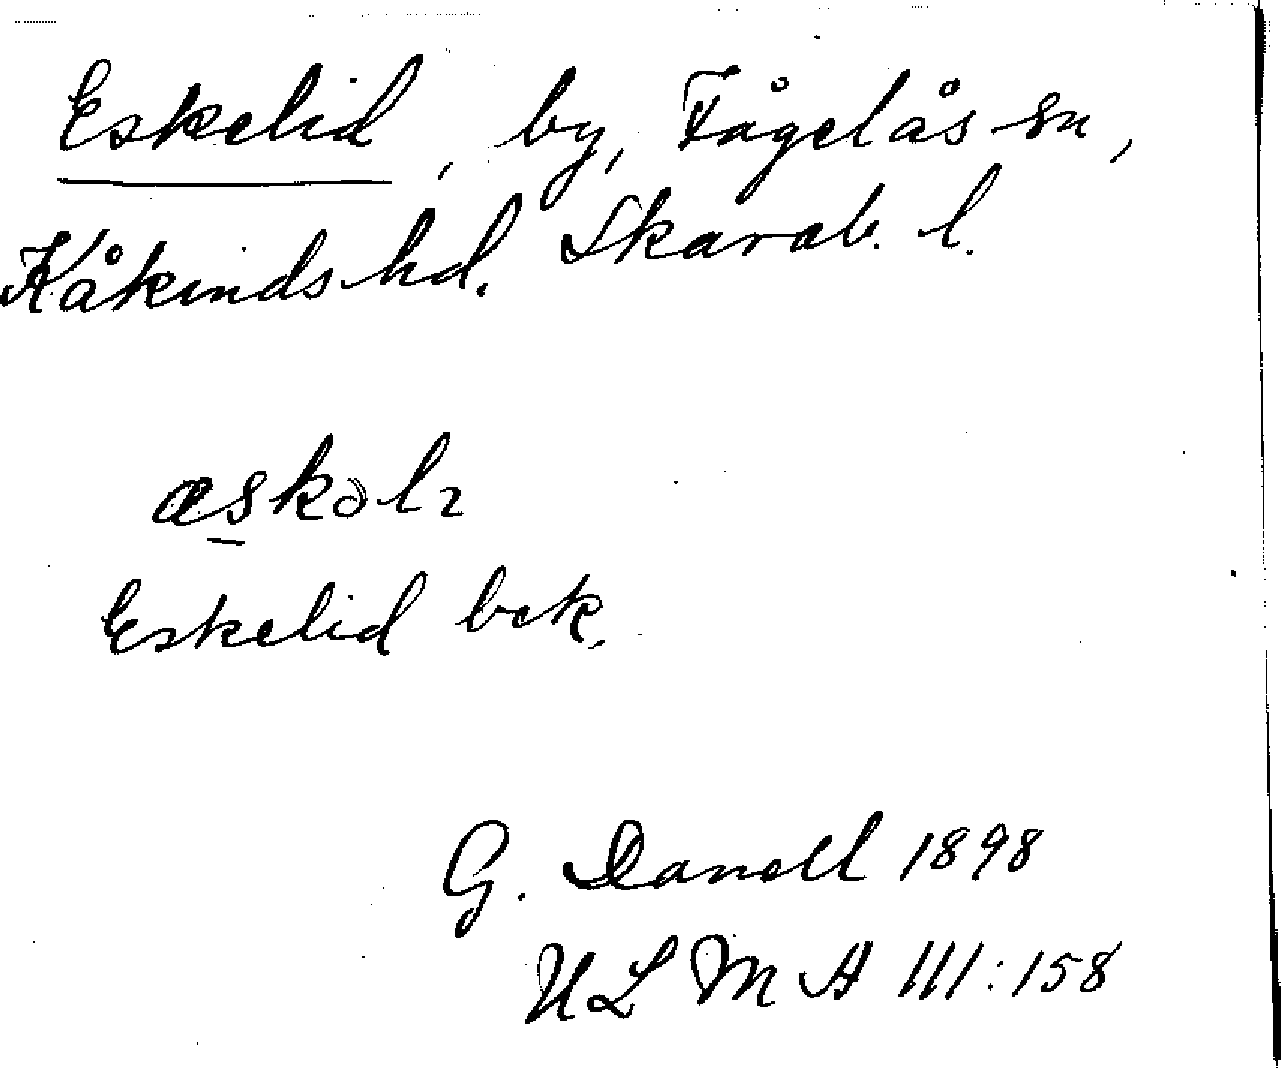 Eskelid, by, Fågelås sn,
Kåkinds hd. Skarab. l.
æskəlɩ
Eskelid bek.
G. Danell 1898
ULMA 111:158